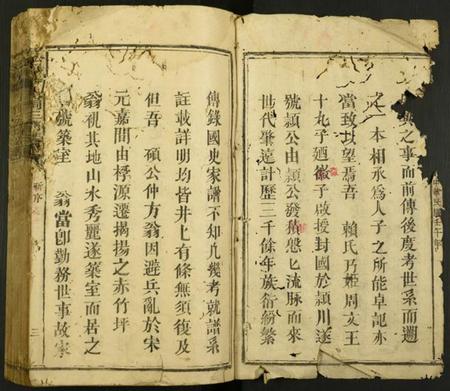 之事而前傳後度考世系而遡
之一本相承為人子之所能卓記亦
當致以望焉吾 賴氏乃姬周文王
十九子廼徽子啟授封國於潁川遂
號潁公由潁公發積悠乚流脉而來
世代肇遠計歷三千餘年族衍紛繁
傳錄國史家譜不知凡幾考就譜系
註載詳明均皆井上有條無須復及
但吾 碩公仲方翁因避兵亂於宋
元嘉間由桴源遷揭揚之赤竹坪
翁視其地山水秀麗遂築室而居之
號築室 翁當卽勤務世事故家
三